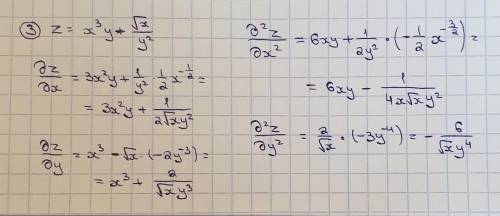 ③ z = x³y + √x/y²
∂z/∂x = 3x²y + 1/y² · 1/2 x^(-1/2) =
= 3x²y + 1/(2√x y²)
∂z/∂y = x³ - √x · (-2y⁻³) =
= x³ + 2/(√x y³)
∂²z/∂x² = 6xy + 1/(2y²) · (-1/2 x^(-3/2)) =
= 6xy - 1/(4x√x y²)
∂²z/∂y² = 2/√x · (-3y⁻⁴) = - 6/(√x y⁴)